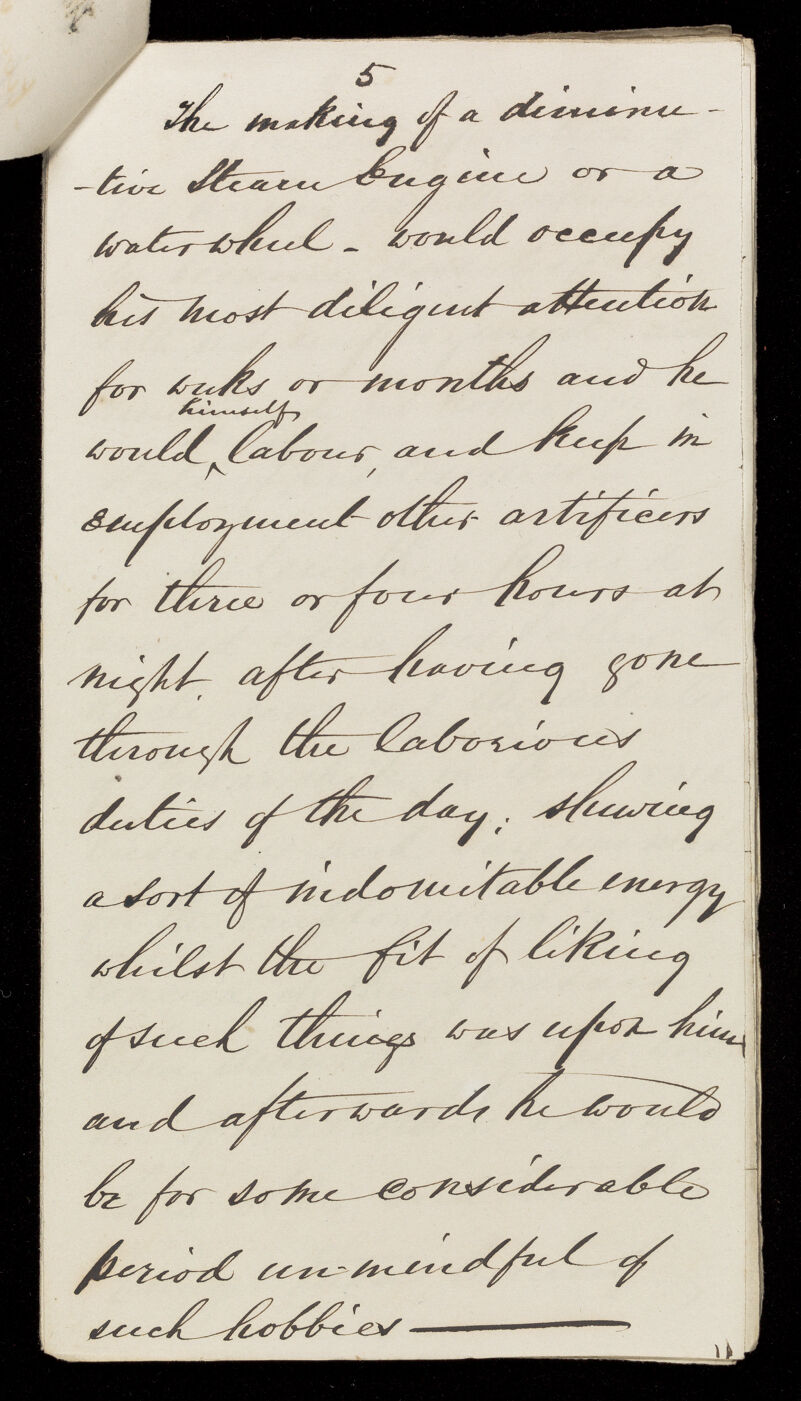 5
The making of a diminu-
-tive Steam Engine or a
waterwheel - would occupy
his most diligent attention
for weeks or months and he
himself
would ^ labour, and keep in
employment other artificers
for three or four hours at
night. after having gone
through the laborious
duties of the day; shewing
a sort of indomitable energy
whilst the fit of liking
of such things was upon him
and afterwards he would
be for some considerable
period un-mindful of
such hobbies —